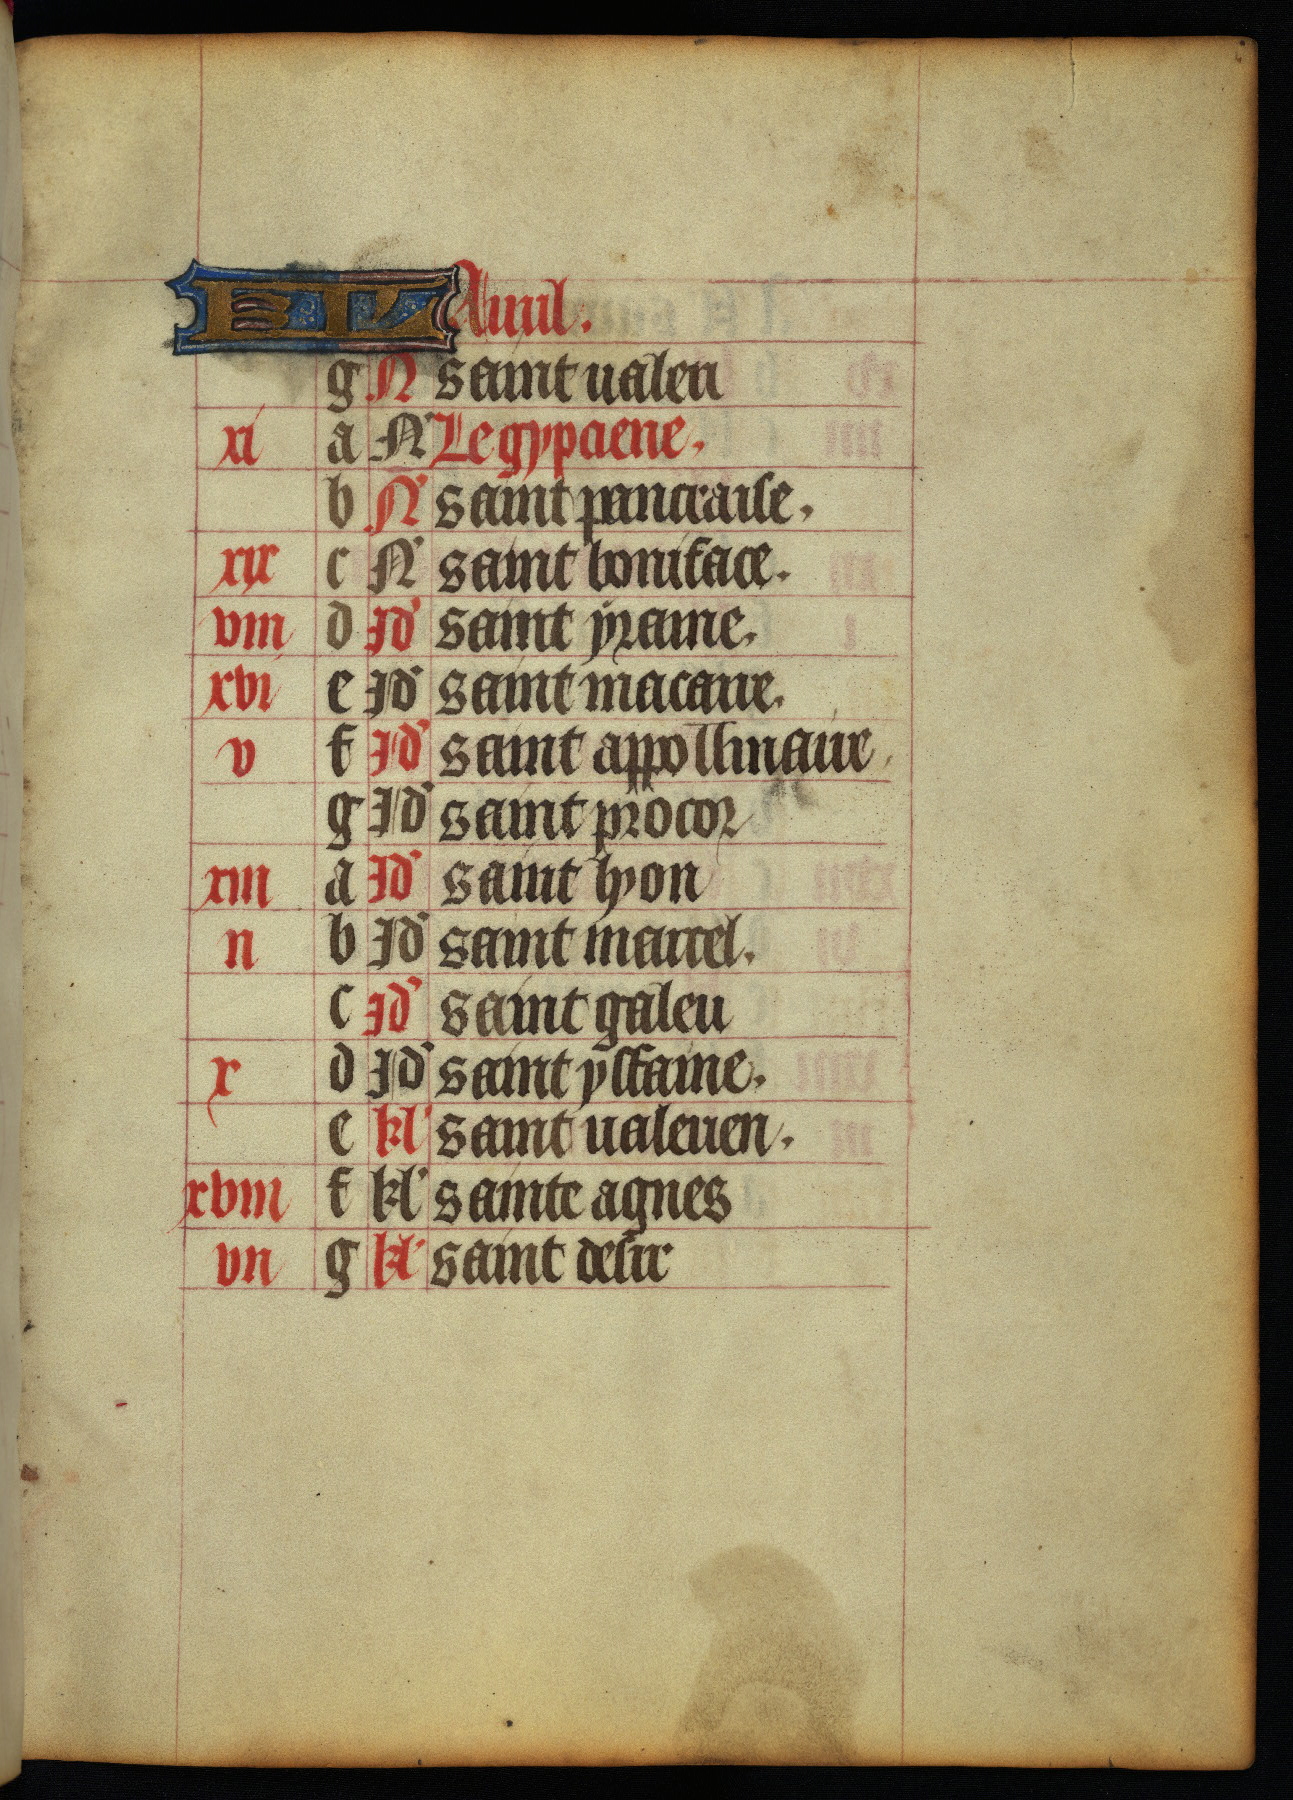 KL Auril.
g N saint ualeri
xi a N Legypciene.
b N saint pancraise.
xix c N saint boniface.
viii d Id saint yraine.
xvi e Id saint macaire.
v f Id saint appollinaire.
g Id saint procor
xiii a Id saint lyon
ii b Id saint marcel.
c Id saint galeri
x d Id saint ysfaine.
e kl saint ualerien.
xviii f kl sainte agnes
vii g kl saint desir